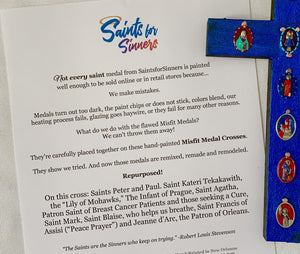 Saints for
Sinners
Not every saint medal from SaintsforSinners is painted
well enough to be sold online or in retail stores because...
We make mistakes.
Medals turn out too dark, the paint chips or does not stick, colors blend, our
heating process fails, glazing goes haywire, or they fail for many other reasons.
What do we do with the flawed Misfit Medals?
We can't throw them away!
They're carefully placed together on these hand-painted Misfit Medal Crosses.
They show we tried. And now those medals are remixed, remade and remodeled.
Repurposed!
On this cross: Saints Peter and Paul. Saint Kateri Tekakawith,
the "Lily of Mohawks," The Infant of Prague, Saint Agatha,
Patron Saint of Breast Cancer Patients and those seeking a Cure,
Saint Mark, Saint Blaise, who helps us breathe, Saint Francis of
Assisi ("Peace Prayer") and Jeanne d'Arc, the Patron of Orleans.
"The Saints are the Sinners who keep on trying." -Robert Louis Stevenson
Painted in New Orleans